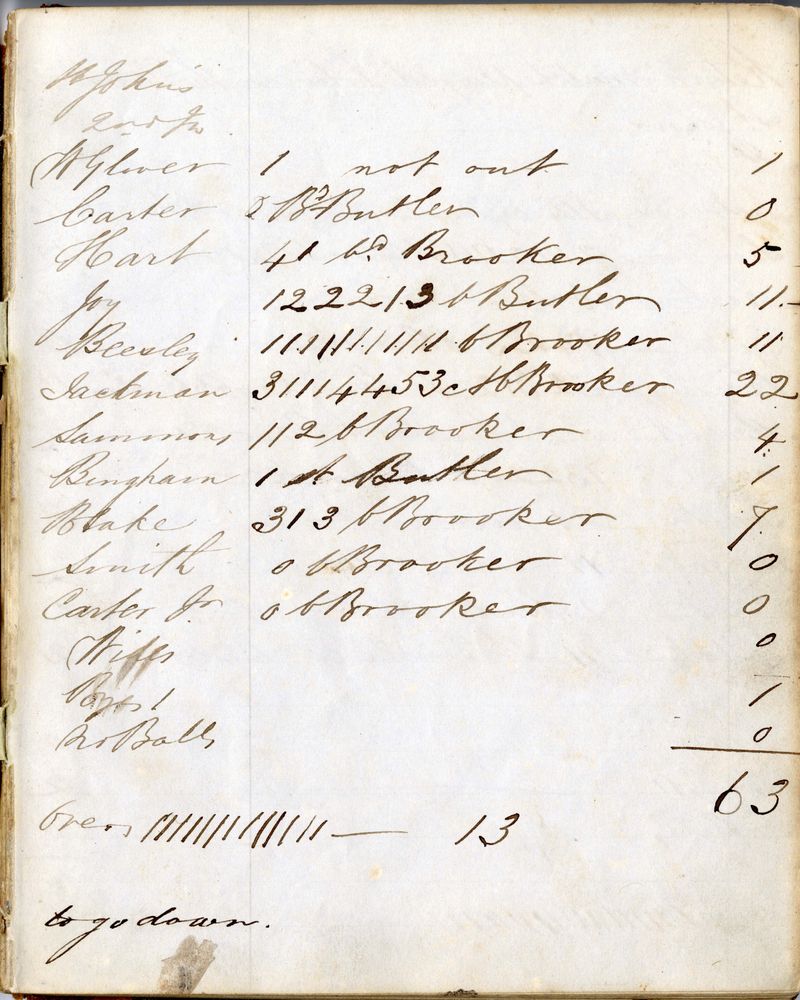 St Johns
2nd In
W Glover 1 not out 1
Carter 0 Bd Butler 0
Hart 41 bd Brooker 5
Joy 122213 b Butler 11
Beesley 11111111111 b Brooker 11
Jackman 31114453 c & b Brooker 22
Sammons 112 b Brooker 4
Bingham 1 st Butler 1
Blake 313 b Brooker 7
Smith 0 b Brooker 0
Carter Jr 0 b Brooker 0
Wides 0
Byes 1 1
No Balls 0
63
Overs ||||||||||||| — 13
to go down.